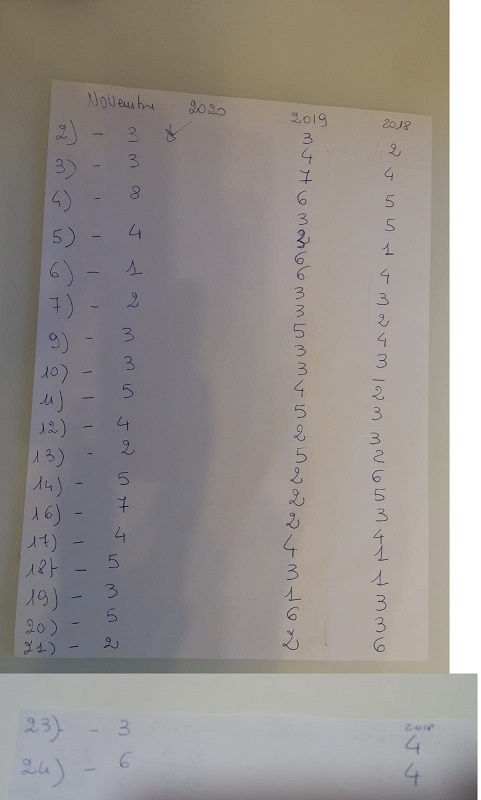 Novembre 2020
2) - 3
3) - 3
4) - 8
5) - 4
6) - 1
7) - 2
9) - 3
10) - 3
11) - 5
12) - 4
13) - 2
14) - 5
16) - 7
17) - 4
18) - 5
19) - 3
20) - 5
21) - 2
2019
3
4
7
6
3
2
6
6
3
3
5
3
3
4
5
2
5
2
2
2
4
3
1
6
2
2018
2
4
5
5
1
4
3
2
4
3
2
3
3
2
6
5
3
4
1
1
3
3
6
2018
23) - 3 4
24) - 6 4